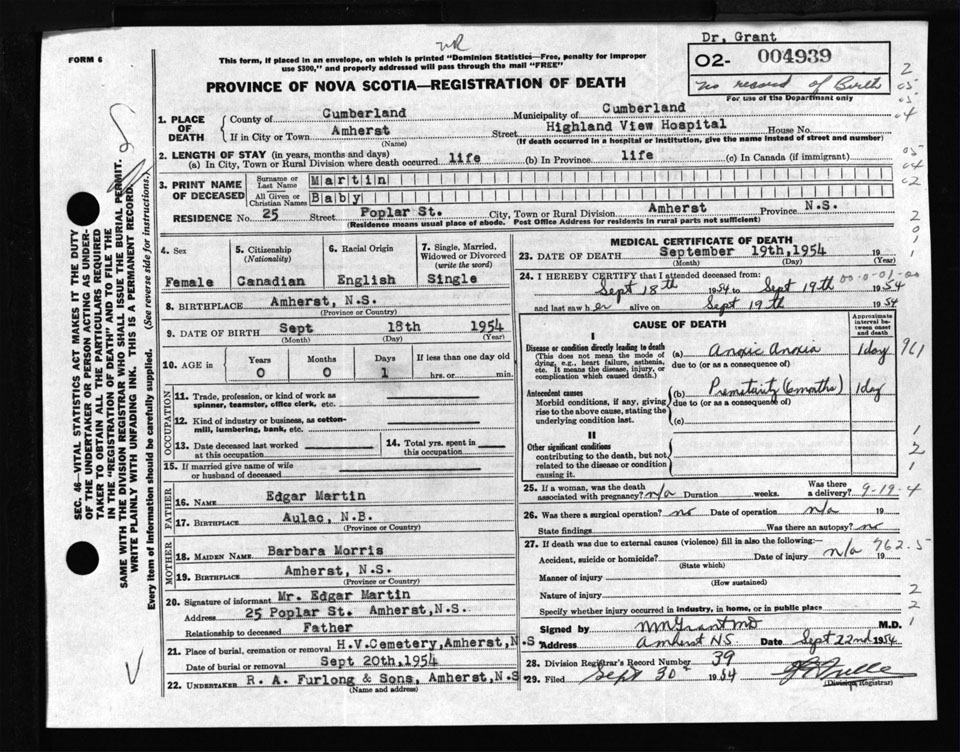 Dr, Grant
FORM 6
This form, if placed in an envelope, on which is printed "Dominion Statistics—Free, penalty for improper
use $300," and properly addressed will pass through the mail "FREE"
02- 004939
no record of Birth
For use of the Department only
PROVINCE OF NOVA SCOTIA—REGISTRATION OF DEATH
1. PLACE OF DEATH
County of Cumberland Municipality of Cumberland
If in City or Town Amherst Street Highland View Hospital House No.
(Name) (If death occurred in a hospital or institution, give the name instead of street and number)
2. LENGTH OF STAY (in years, months and days)
(a) In City, Town or Rural Division where death occurred life (b) In Province life (c) In Canada (if immigrant)
3. PRINT NAME OF DECEASED
Surname or Last Name Martin
All Given or Christian Names Baby
RESIDENCE No. 25 Street Poplar St. City, Town or Rural Division Amherst Province N.S.
(Residence means usual place of abode. Post Office Address for residents in rural parts not sufficient)
4. Sex
Female
5. Citizenship
(Nationality)
Canadian
6. Racial Origin
English
7. Single, Married, Widowed or Divorced
(write the word)
Single
8. BIRTHPLACE Amherst, N.S.
(Province or Country)
9. DATE OF BIRTH Sept 18th 1954
(Month) (Day) (Year)
10. AGE in Years Months Days If less than one day old
0 0 1 hrs. or min.
OCCUPATION
11. Trade, profession, or kind of work as
spinner, teamster, office clerk, etc.
12. Kind of industry or business, as cotton-
mill, lumbering, bank, etc.
13. Date deceased last worked
at this occupation
14. Total yrs. spent in
this occupation
15. If married give name of wife
or husband of deceased
FATHER
16. NAME Edgar Martin
17. BIRTHPLACE Aulac, N.B.
(Province or Country)
MOTHER
18. MAIDEN NAME Barbara Morris
19. BIRTHPLACE Amherst, N.S.
(Province or Country)
20. Signature of informant Mr. Edgar Martin
Address 25 Poplar St. Amherst,N.S.
Relationship to deceased Father
21. Place of burial, cremation or removal H.V.Cemetery,Amherst,N.S
Date of burial or removal Sept 20th,1954
22. UNDERTAKER R. A. Furlong & Sons, Amherst,N.S
(Name and address)
MEDICAL CERTIFICATE OF DEATH
23. DATE OF DEATH September 19th,1954 19
(Month) (Day) (Year)
24. I HEREBY CERTIFY that I attended deceased from:
Sept 18th 1954 to Sept 19th 1954
and last saw her alive on Sept 19th 1954
CAUSE OF DEATH
Approximate interval between onset and death
I
Disease or condition directly leading to death
(This does not mean the mode of
dying, e.g., heart failure, asthenia,
etc. It means the disease, injury, or
complication which caused death.)
(a) Anoxic Anoxia 1 day 961
due to (or as a consequence of)
Antecedent causes
Morbid conditions, if any, giving
rise to the above cause, stating the
underlying condition last.
(b) Prematurity (6 months) 1 day
due to (or as a consequence of)
(c)
II
Other significant conditions
contributing to the death, but not
related to the disease or condition
causing it.
25. If a woman, was the death
associated with pregnancy? n/a Duration weeks. Was there
a delivery? 9-19-4
26. Was there a surgical operation? no Date of operation n/a 19
State findings Was there an autopsy? no
27. If death was due to external causes (violence) fill in also the following:—
Accident, suicide or homicide? Date of injury n/a 19 762.5
(State which)
Manner of injury
(How sustained)
Nature of injury
Specify whether injury occurred in industry, in home, or in public place
Signed by M.D.
Address Amherst NS Date Sept 22nd 1954
28. Division Registrar's Record Number 39
29. Filed Sept 30th 1954
(Division Registrar)
SEC. 46—VITAL STATISTICS ACT MAKES IT THE DUTY
OF THE UNDERTAKER OR PERSON ACTING AS UNDER-
TAKER TO OBTAIN ALL THE PARTICULARS REQUIRED
IN THE "REGISTRATION OF DEATH" AND TO FILE THE
SAME WITH THE DIVISION REGISTRAR WHO SHALL ISSUE THE BURIAL PERMIT.
WRITE PLAINLY WITH UNFADING INK. THIS IS A PERMANENT RECORD.
Every item of information should be carefully supplied. (See reverse side for instructions.)